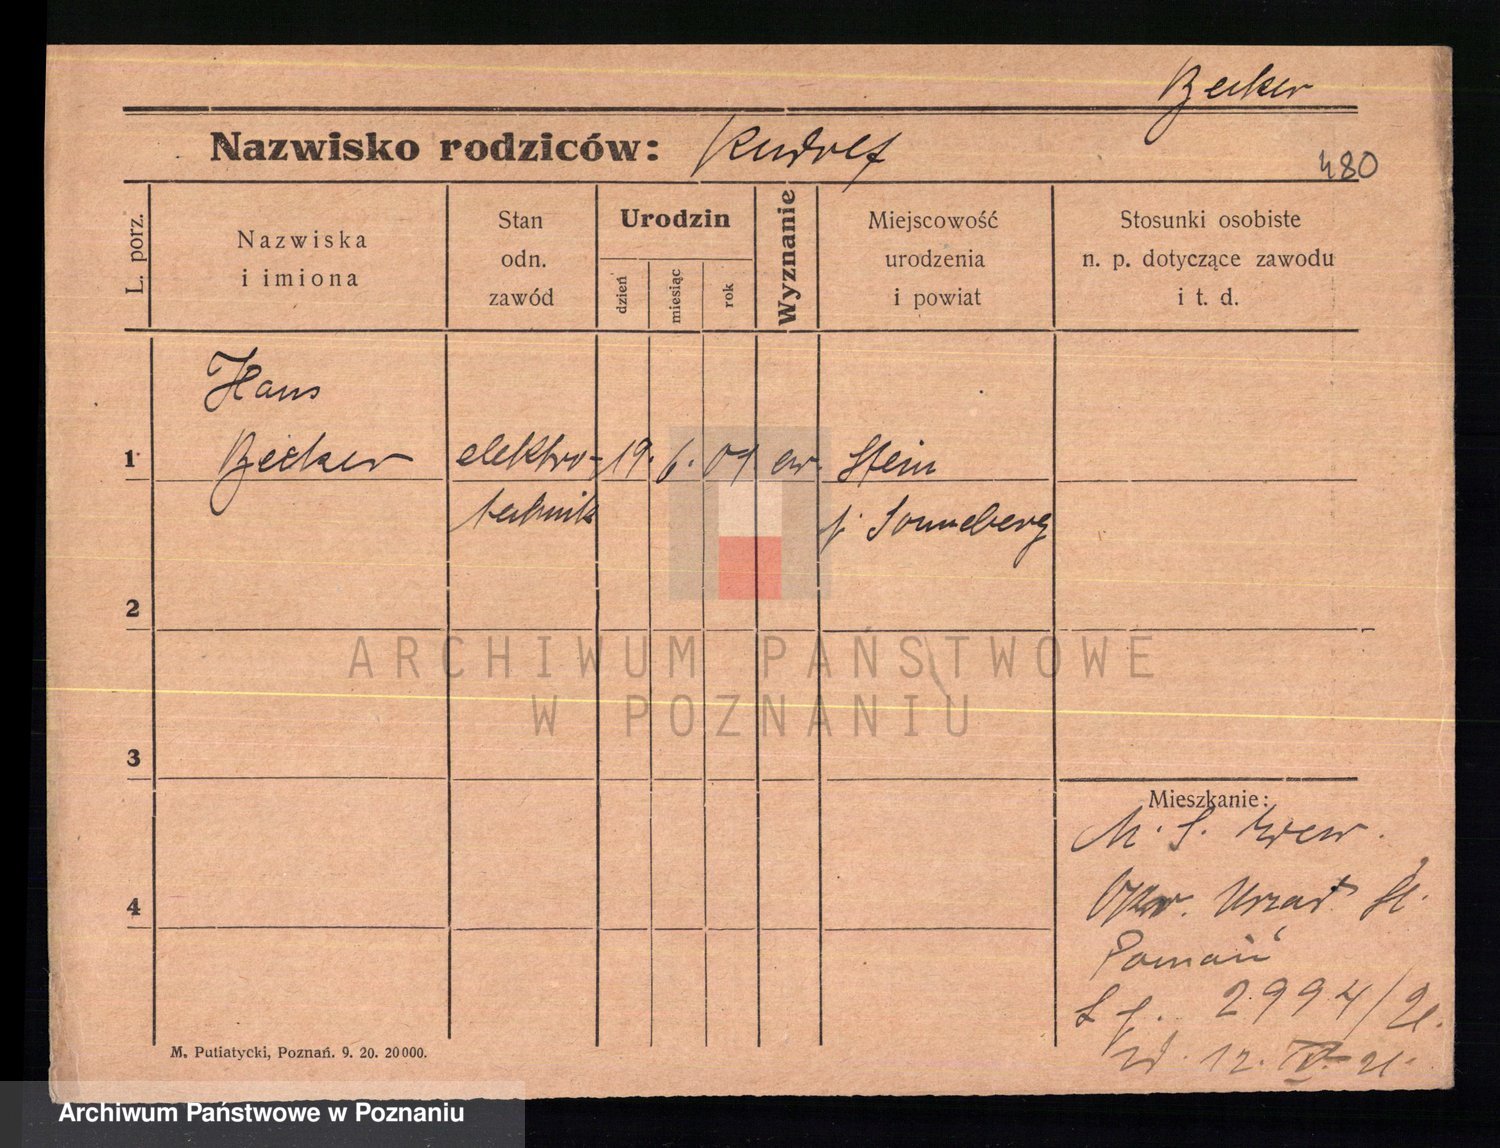 Becker
Nazwisko rodziców: Rudolf
480
L. porz.
Nazwiska
i imiona
Stan
odn.
zawód
Urodzin
dzień
miesiąc
rok
Wyznanie
Miejscowość
urodzenia
i powiat
Stosunki osobiste
n. p. dotyczące zawodu
i t. d.
Hans
1 Becker elektro- 19. 6. 01 ew. Stein
technik Sonneberg
2
3
4
Mieszkanie:
M. S. wew.
Okr. Urząd
Poznań
2994/21.
12. IV. 21.
M. Putiatycki, Poznań. 9. 20. 20000.
ARCHIWUM PAŃSTWOWE
W POZNANIU
Archiwum Państwowe w Poznaniu